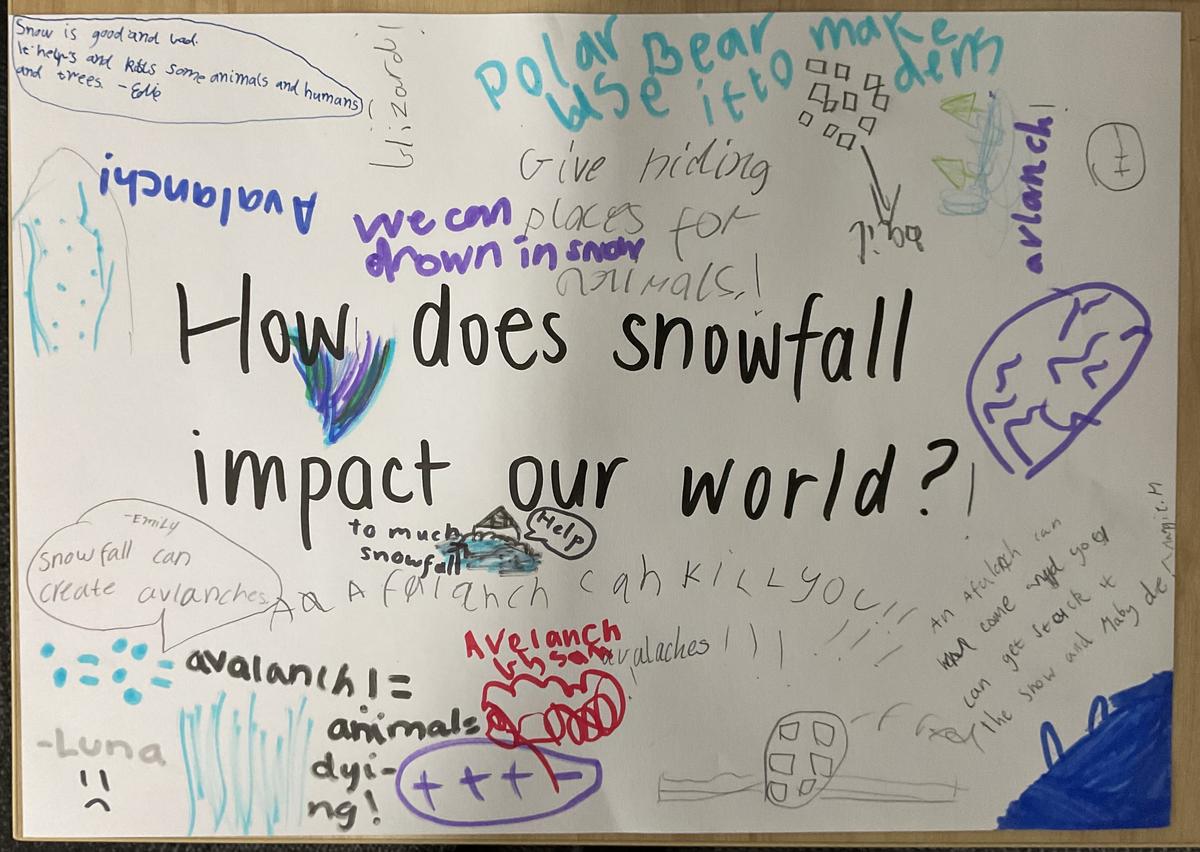 Snow is good and bad.
It helps and kills some animals and humans
and trees. - Edie
blizard!
Polar Bear make
use it to dens
Avalanch!
Give hiding
places for
animals!
we can
drown in snow
avlanch!
How does snowfall
impact our world?
to much
snowfall
Help
-Emily
Snowfall can
create avlanches.
A Afalanch can KiLL you!!
An Afalanch can
come and you
can get stuck it
the snow and Maby die
Avelanch
avalaches!!!
avalanch! =
animals
dyi-
ng!
-Luna